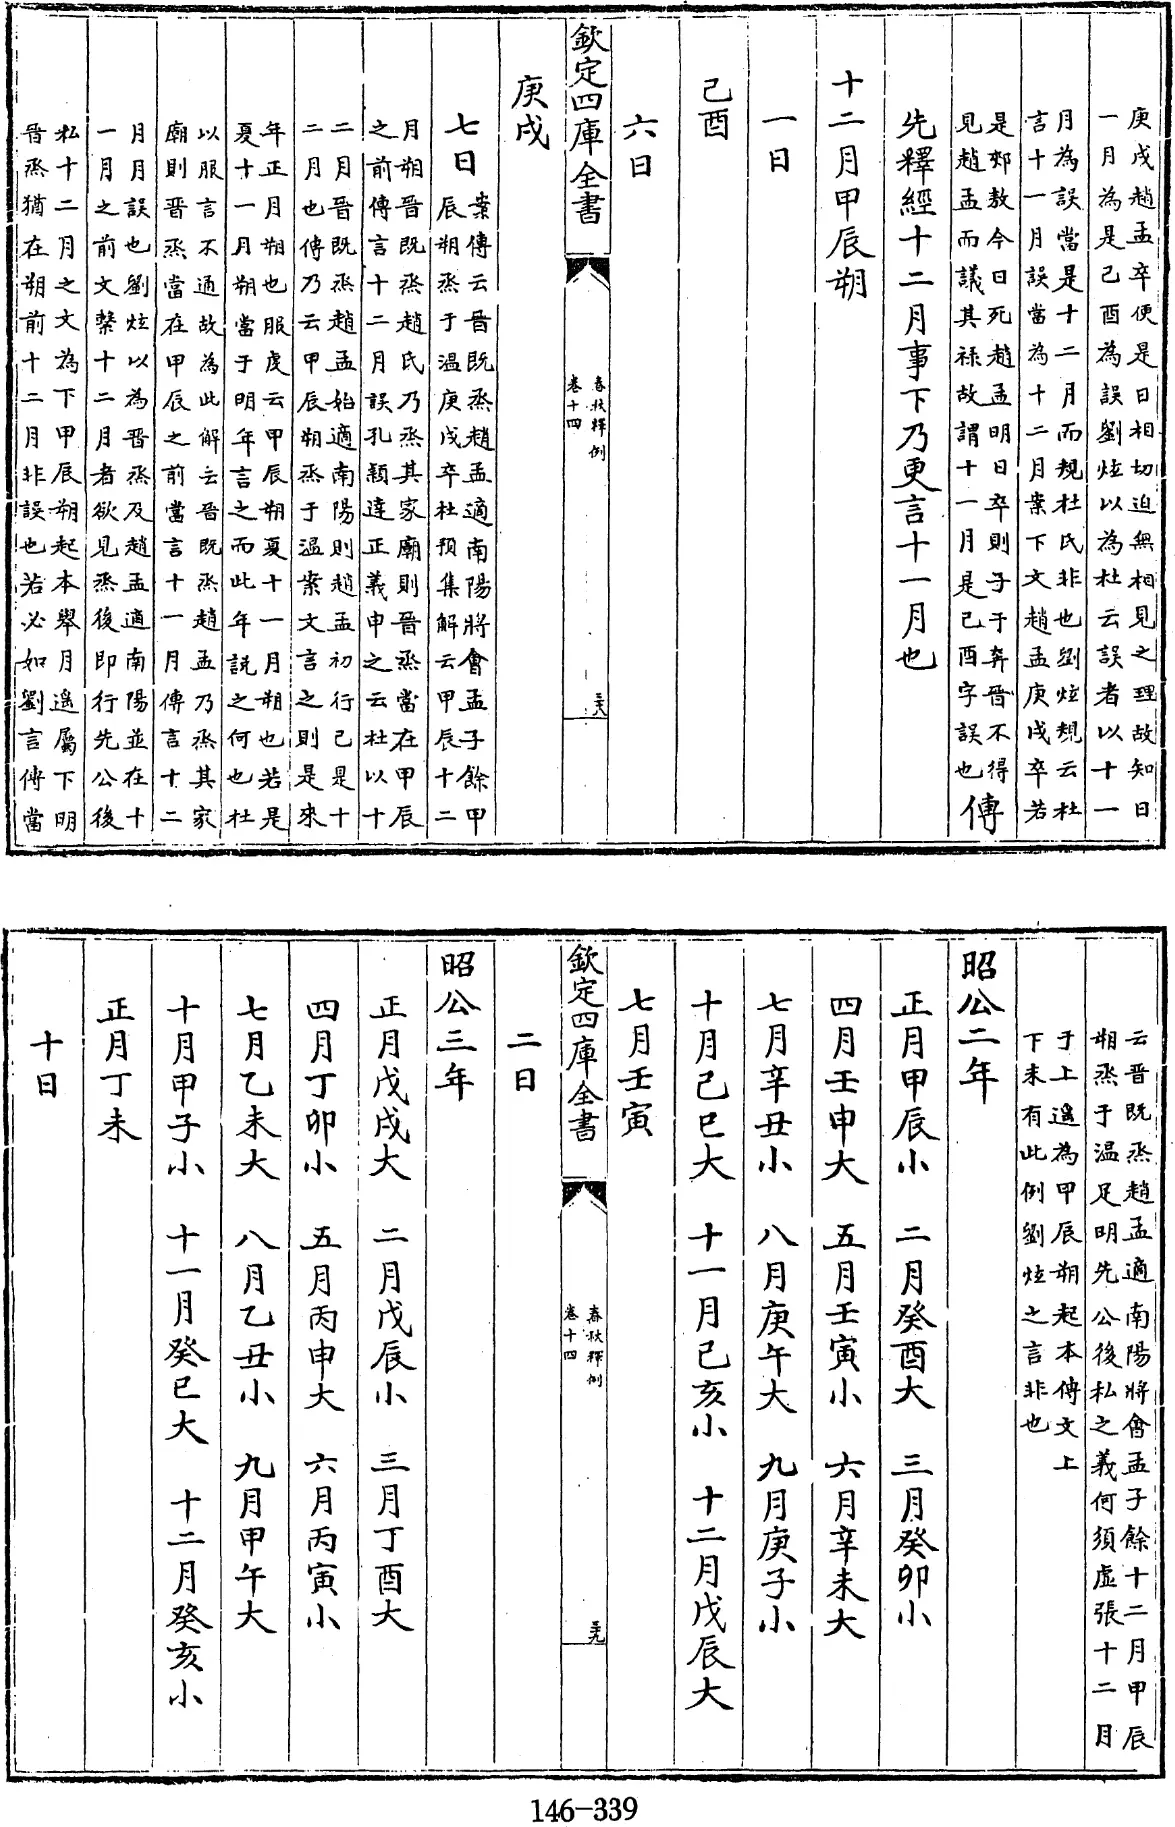 庚戌趙孟卒便是日相切迫無相見之理故知日
一月為是己酉為誤劉炫以為杜云誤者以十一
月為誤當是十二月而規杜氏非也劉炫規云杜
言十一月誤當為十二月案下文趙孟庚戌卒若
是郟敖今日死趙孟明日卒則子于奔晉不得
見趙孟而議其祿故謂十一月是己酉字誤也傳
先釋經十二月事下乃更言十一月也
十二月甲辰朔
一日
己酉
六日
欽定四庫全書
春秋釋例
卷十四
三六
庚戌
七日
案傳云晉既烝趙孟適南陽將會孟子餘甲
辰朔烝于温庚戌卒杜預集解云甲辰十二
月朔晉既烝趙氏乃烝其家廟則晉烝當在甲辰
之前傳言十二月誤孔穎達正義申之云杜以十
二月晉既烝趙孟始適南陽則趙孟初行己是十
二月也傳乃云甲辰朔烝于温案文言之則是來
年正月朔也服虔云甲辰朔夏十一月朔也若是
夏十一月朔當于明年言之而此年説之何也杜
以服言不通故為此解云晉既烝趙孟乃烝其家
廟則晉烝當在甲辰之前當言十一月傳言十二
月月誤也劉炫以為晉烝及趙孟適南陽並在十
一月之前文繫十二月者欲見烝後即行先公後
私十二月之文為下甲辰朔起本舉月遙屬下明
晉烝猶在朔前十二月非誤也若必如劉言傳當
云晉既烝趙孟適南陽將會孟子餘十二月甲辰
朔烝于温足明先公後私之義何須虛張十二月
于上遙為甲辰朔起本傳文上
下未有此例劉炫之言非也
昭公二年
正月甲辰小 二月癸酉大 三月癸卯小
四月壬申大 五月壬寅小 六月辛未大
七月辛丑小 八月庚午大 九月庚子小
十月己巳大 十一月己亥小 十二月戊辰大
七月壬寅
欽定四庫全書
春秋釋例
卷十四
三九
二日
昭公三年
正月戊戌大 二月戊辰小 三月丁酉大
四月丁卯小 五月丙申大 六月丙寅小
七月乙未大 八月乙丑小 九月甲午大
十月甲子小 十一月癸巳大 十二月癸亥小
正月丁未
十日
146-339